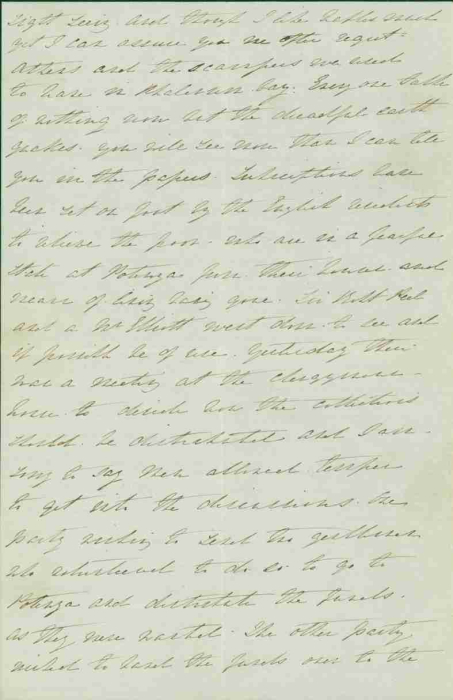 sight seeing and though I like Naples much
yet I can assure you we often regret
Athens and the scampers we used
to have in Phalerum bay. Every one talks
of nothing now but the dreadful earth
quakes. you will see more than I can tell
you in the papers. Subscriptions have
been set on foot by the English residents
to relieve the poor. who are in a fearful
state at Potenza from their houses and
means of living being gone. Sir Robt Peel
and a Mr Elliott went down to see and
if possible be of use. Yesterday there
was a meeting at the clergymans
house to decide how the collections
should be distributed and I am
sorry to say men allowed temper
to get into the discussions. One
party wishing to send two gentlemen
who volunteered to do so to go to
Potenza and distribute the funds.
as they were wanted. The other party
wished to hand the funds over to the